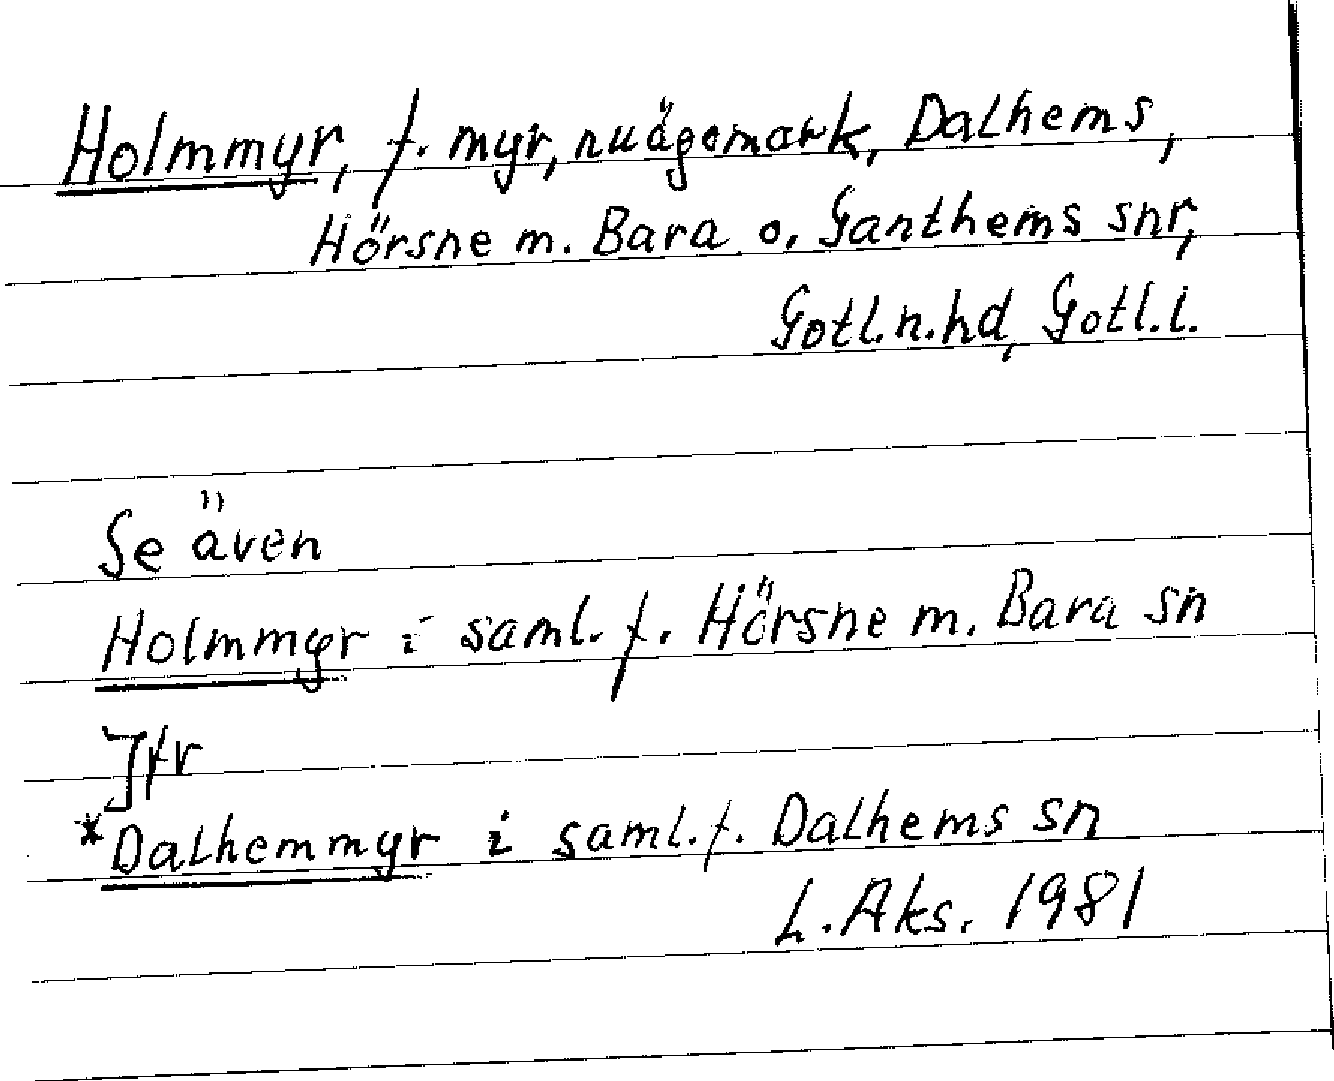 Holmmyr, f. myr, nu ägomark, Dalhems,
Hörsne m. Bara o. Ganthems snr,
Gotl. n. hd, Gotl. l.
Se även
Holmmyr i saml. f. Hörsne m. Bara sn
Jfr
*Dalhemmyr i saml. f. Dalhems sn
L. Aks. 1981